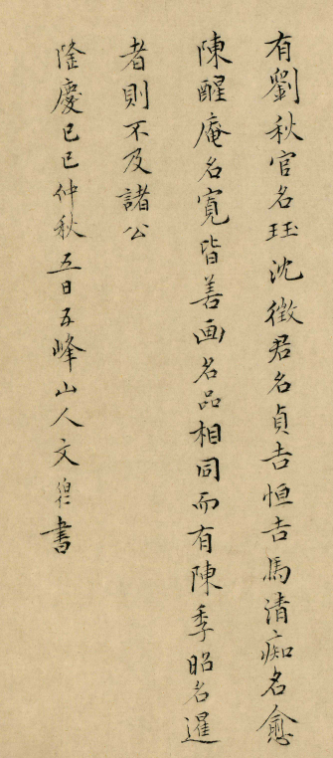 有劉秋官名珏沈徵君名貞吉恒吉馬清痴名愈
陳醒庵名寬皆善画名品相同而有陳季昭名暹
者則不及諸公
隆慶己巳仲秋五日五峰山人文伯仁書